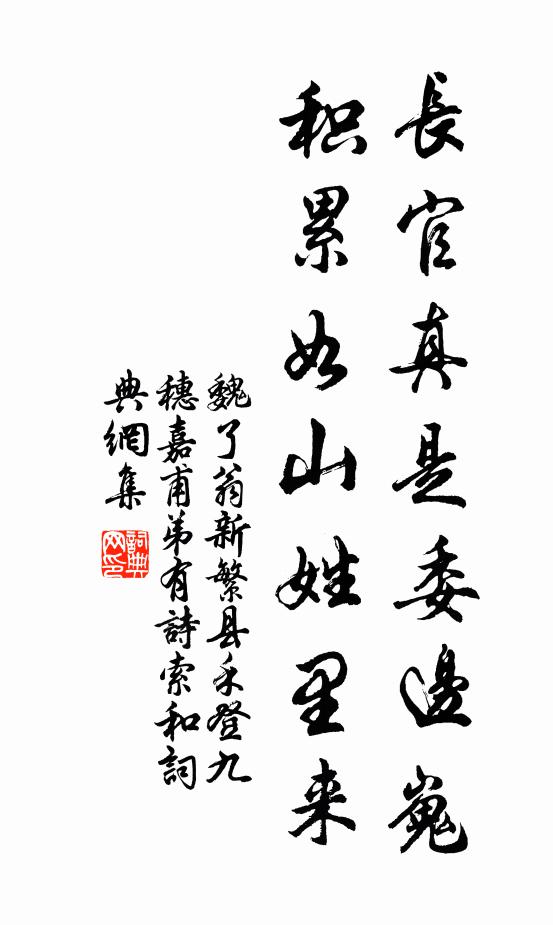 長官真是委邊嵬
积累如山姓里来
魏了翁新繁县禾登九
穗嘉甫弟有詩索和詞
典網集
詞典
网印